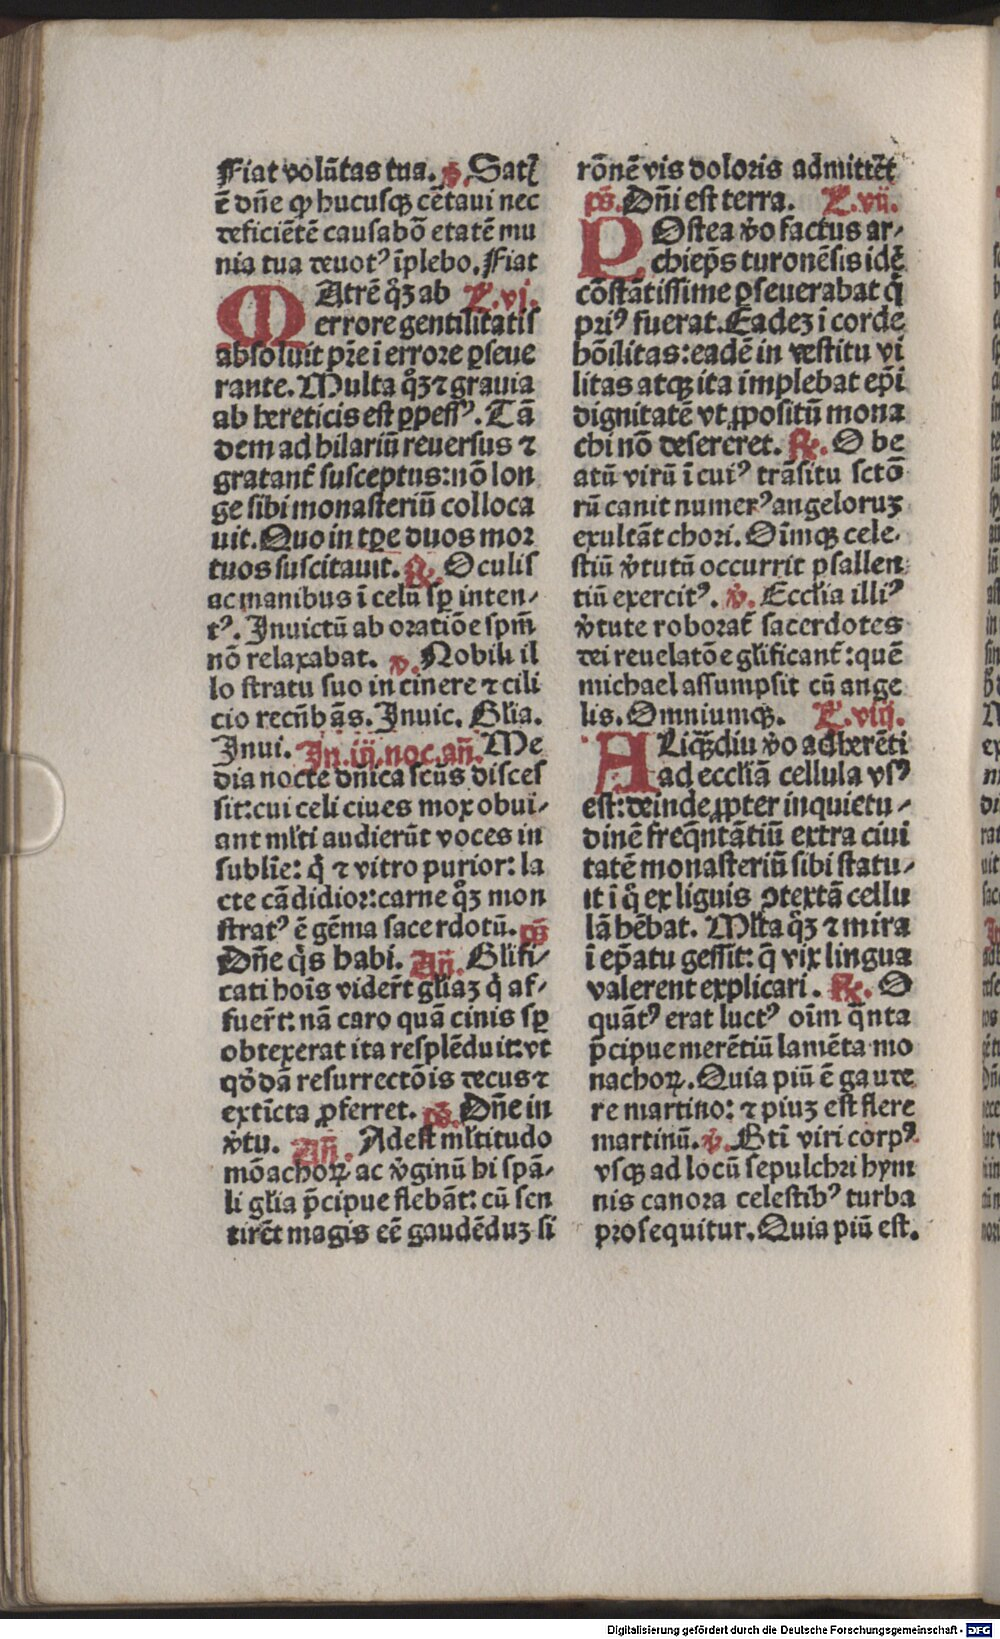 Fiat volūtas tua. ꝟ. Satꝭ
ē dn̄e ꝙ hucusqꝫ cētaui nec
deficiētē causabō etatē mu
nia tua deuotꝰ īplebo. Fiat
MAtrē qͦꝫ ab L.vj.
errore gentilitatis
absoluit pr̄e i errore ꝑseue
rante. Multa qͦꝫ ⁊ grauia
ab hereticis est ꝑpessꝰ. Tā
dem ad hilariū reuersus ⁊
gratant̄ susceptus: nō lon
ge sibi monasteriū colloca
uit. Quo in tꝑe duos mor
tuos suscitauit. ℟. Oculis
ac manibus ī celū sꝑ inten-
tꝰ. Inuictū ab oratiōe spm̄
nō relaxabat. ꝟ. Nobili il
lo stratu suo in cinere ⁊ cili
cio recūbās. Inuic. Glīa.
Inui. In .iij. noc. an̄. Me
dia nocte dn̄ica scūs disces
sit: cui celi ciues mox obui-
ant ml̄ti audierūt voces in
sublīe: q̇ ⁊ vitro purior: la
cte cādidior: carne qͦꝫ mon
stratꝰ ē gēma sacerdotū. pꝰ
Dn̄e q̇s habi. An̄. Glīfi-
cati hoīs viderūt glīaꝫ q̇ af-
fuer̄t: nā caro quā cinis sꝑ
obtexerat ita resplēduit: vt
qͦdā resurrectōis decus ⁊
extīcta ꝓferret. pꝰ. Dn̄e in
ꝟtu. An̄. Adest ml̄titudo
mōachoꝝ ac ꝟginū hi spā-
li glīa p̄cipue flebāt: cū sen
tirēt magis eē gaudēduꝫ si
rōnē vis doloris admittēt
pꝰ. Dn̄i est terra. L.vij.
POstea ꝟo factus ar-
chiep̄s turonēsis idē
cōstātissime ꝑseuerabat q̇
priꝰ fuerat. Eadeꝫ i corde
hōilitas: eadē in vestitu vi
litas atqꝫ ita implebat ep̄i
dignitatē vt ꝓpositū mona
chi nō desereret. ℟. O be
atū virū ī cuiꝰ trāsitu sctō
rū canit numerꝰ angeloruꝫ
exultāt chori. Oīmqꝫ cele-
stiū ꝟtutū occurrit psallen
tiū exercitꝰ. ꝟ. Eccl̄ia illiꝰ
ꝟtute roborat̄ sacerdotes
dei reuelatōe gl̄ificant̄: quē
michael assumpsit cū ange
lis. Omniumqꝫ. L.viij.
ALiqͣꝫdiu ꝟo adherēti
ad eccl̄iā cellula vsꝰ
est: deinde ꝓpter inquietu-
dinē freqn̄tātiū extra ciui
tatē monasteriū sibi statu-
it ī q̇ ex liguis ꝯtextā cellu
lā hēbat. Ml̄ta qͦꝫ ⁊ mira
ī ep̄atu gessit: q̄ vix lingua
valerent explicari. ℟. O
quātꝰ erat luctꝰ oīm q̄nta
p̄cipue merētiū lamēta mo
nachoꝝ. Quia piū ē gaude
re martino: ⁊ piuꝫ est flere
martinū. ꝟ. Bt̄i viri corpꝰ
vsqꝫ ad locū sepulchri hym
nis canora celestibꝰ turba
prosequitur. Quia piū est.
Digitalisierung gefördert durch die Deutsche Forschungsgemeinschaft - DFG